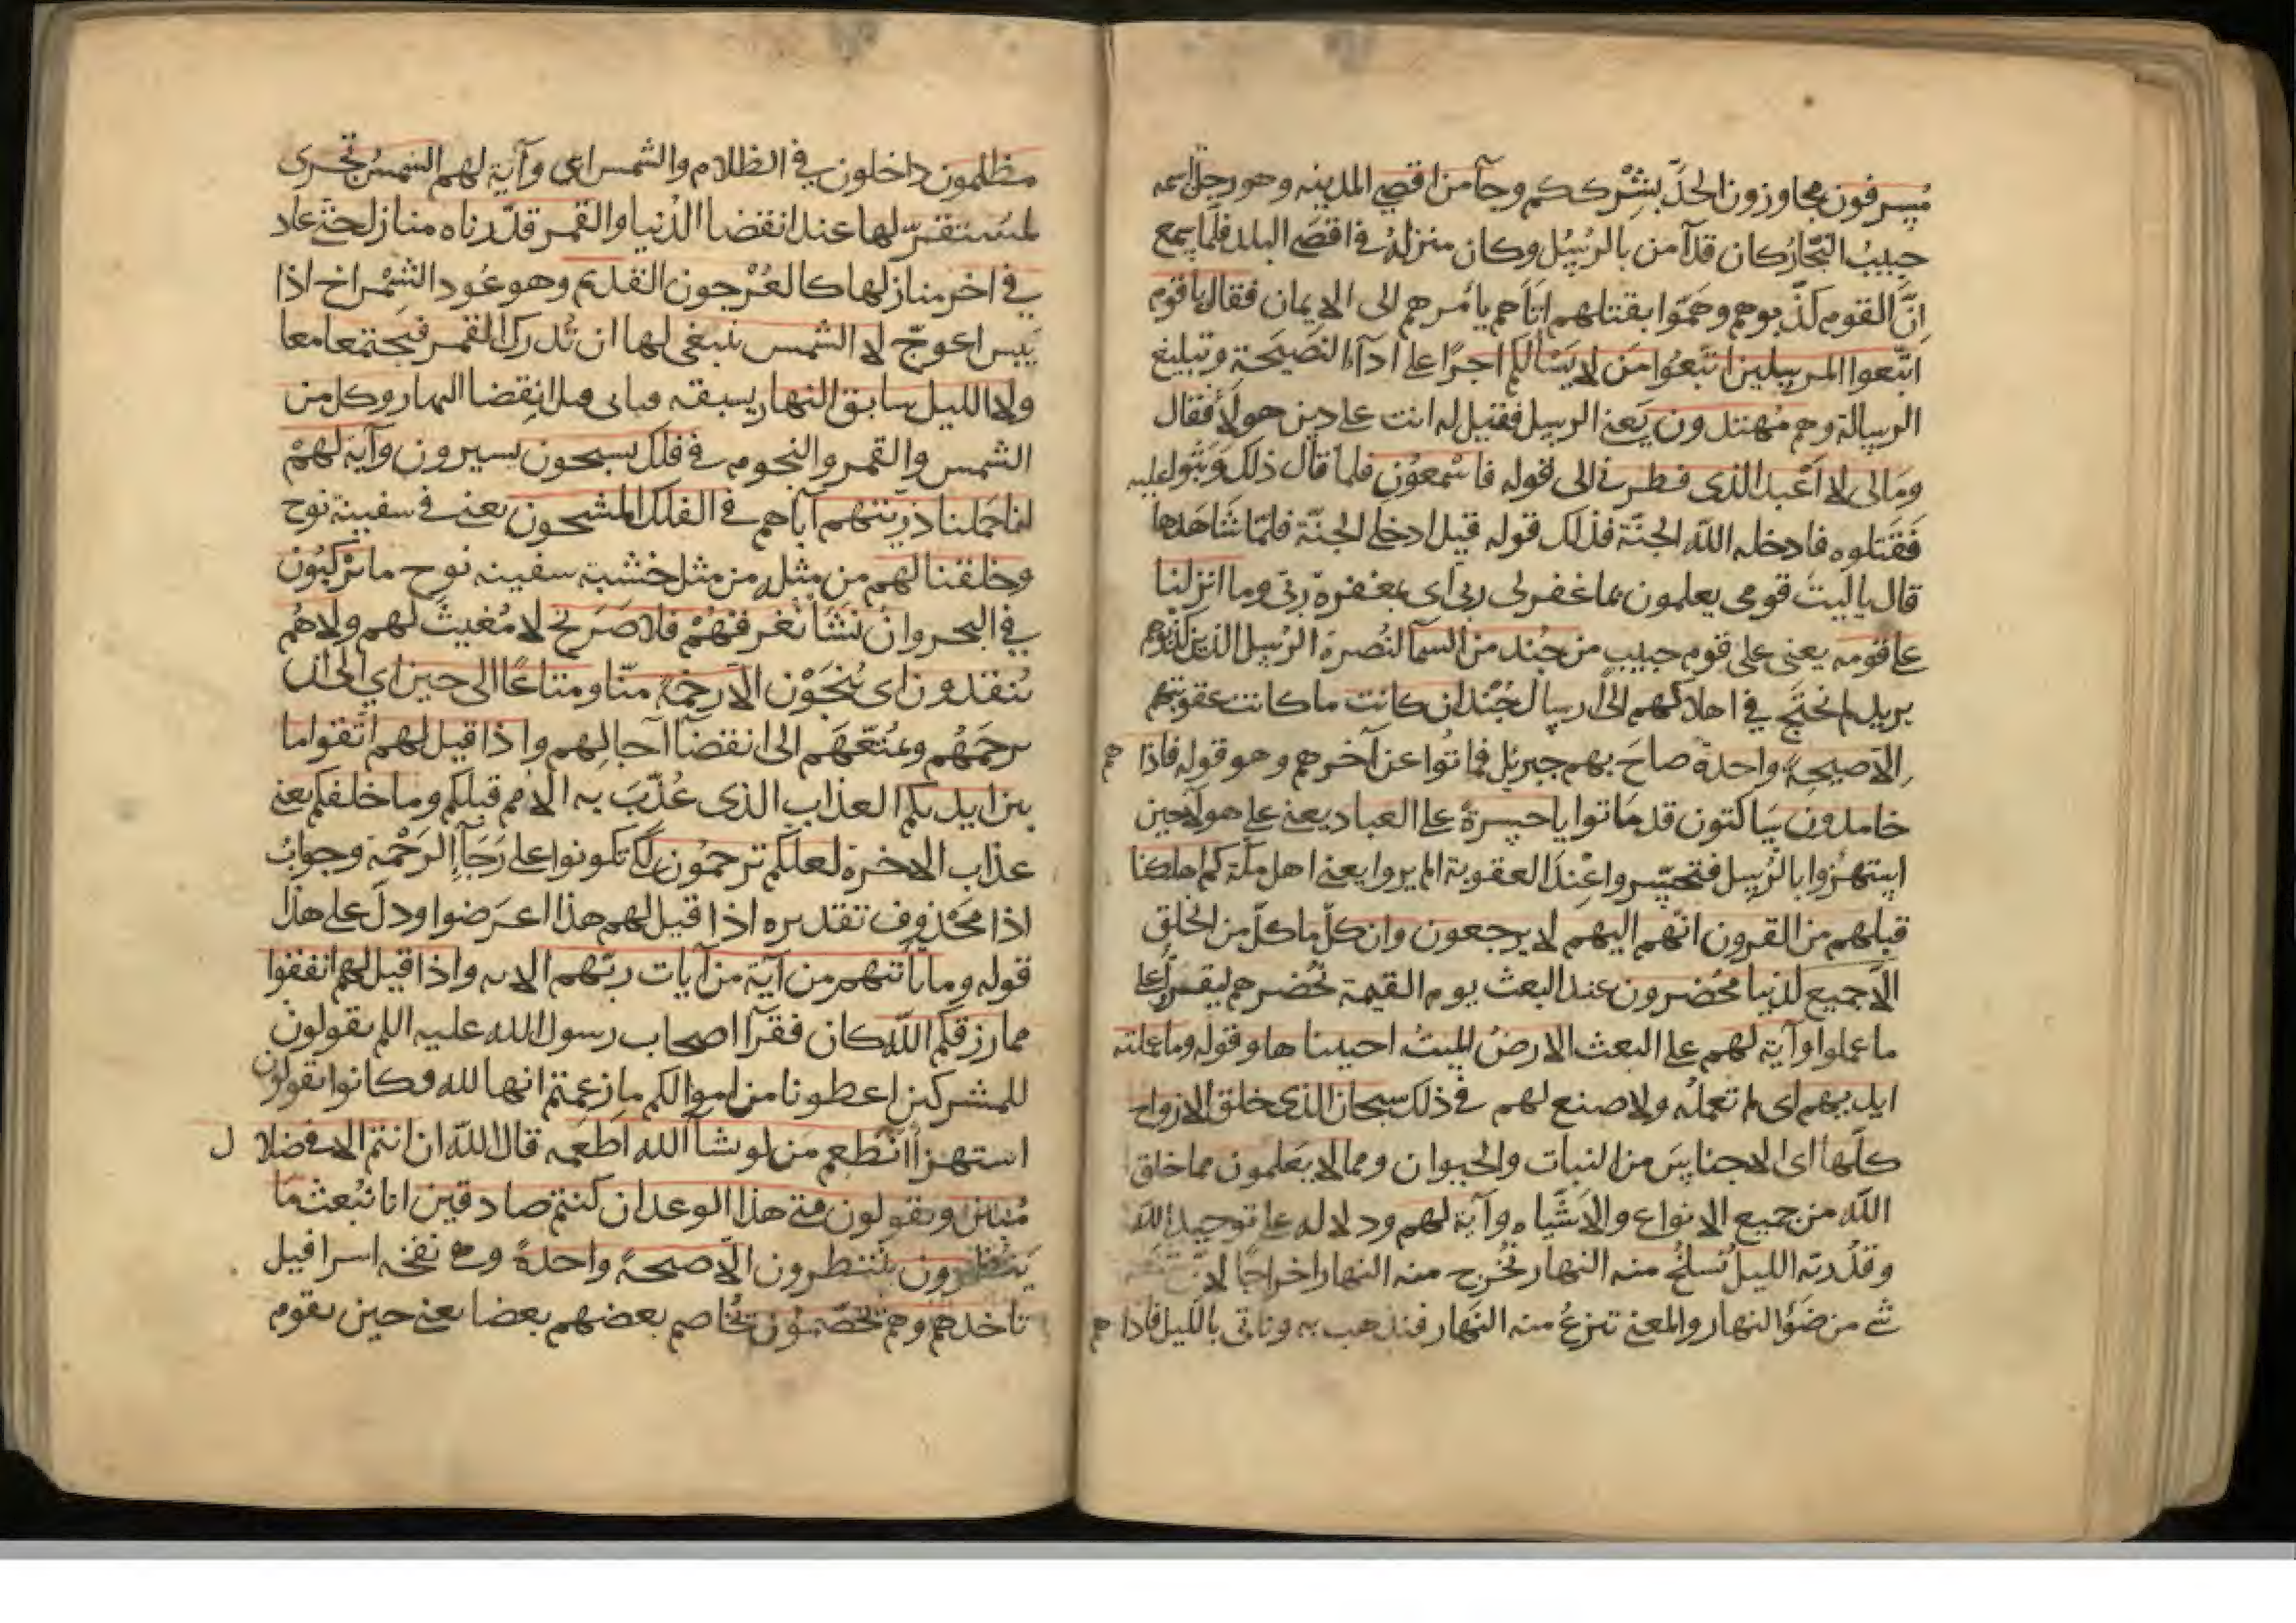 مُسرفون مجاوزون الحدّ بشرككم وجآ من اقصى المدينه وهو رجل اسمه
حبيبُ النجّار كان قد آمن بالرُسُل وكان منزله في اقصَى البلد فلمّا سمع
انَّ القوم كذّبوهم وهَمّوا بقتلهم اتاهم يأمرهم الى الايمان فقال ياقوم
اتّبعوا المرسلين اتّبعُوا مَن لا يَسْالكم اجرًا على ادآء النصَيحَة وتبليغ
الرسالة وهم مُهتدون يَعنى الرسل فقيل له انت على دين هولآ فقال
ومَالى لا اَعْبد الذى فطرنى الى قوله فاسْمعُون فلما قال ذلك وَثبُوا عليه
فَقَتلوه فادخله اللّه الجنّة فذلك قوله قيل ادخل الجنّة فلمّا شاهَدها
قال ياليتَ قومى يعلمون بما غفر لى ربى اى بمغفرة ربّى وما انزلنا
على قومه يعنى على قوم حبيبٍ من جُند من السمآ لنُصرة الرُسل الذين كذبوهم
يريد لم نحتَج في اهلاكهم الى ارسال جُنْد ان كانت ما كانت عقوبتهم
الاّ صيحةً واحدةً صاحَ بهم جبريل فماتُوا عن آخرهم وهو قوله فاذا هم
خامدون سَاكتون قد مَاتوا ياحسرةً على العباد يعنى على هولآ حين
استهزُوا بالرُسل فتحسّروا عِنْدَ العقوبة الم يروا يعنى اهل مكّة كم اهلكنا
قبلهم من القرون انّهم اليهم لا يرجعون وان كلّ ما كلّ من الخلق
الاّ جميع لدينا محُضرون عند البعث يوم القيمة نُحضرهم ليقفوا على
ما عملوا وآية لهم على البعث الارضُ الميتُ احييناها وقوله وما عملته
ايديهم اى لم تعملْه ولا صنع لهم في ذلك سبحان الذى خلق الازواج
كلّها اى الاجناسَ من النبات والحيوان ومما لا يعَلمون مما خلق
اللّه من جميع الانواع والاشيَاء وآية لهم ودلاله على توحيد اللّه
وقدرته الليلُ نَسلخُ منه النهار نُخرج منه النهار اخراجًا لا
شى من ضوَء النهار والمعنى ننزعُ منه النّهار فنذهب به وناتى بالليل فاذا هم
مظلمون داخلون في الظلام والشمس اى وآية لهم الشمسُ تجرى
لمُستقرّ لها عند انقضا الدُنيا والقمر قدّرناه منازل حتى عاد
في اخر منازلها كالعُرْجون القديم وهو عُود الشِمْراخ اذا
يبس اعوجّ لا الشمس ينبغى لها ان تُدرك القمر فيَجتمعا معا
ولا الليل سابق النهار يسبقه فياتى قبل انقضا النهار وكل من
الشمس والقمر والنجوم في فلك يسبحون يسيرون وآية لهمْ
انا حَملنا ذريتهم آباهم في الفلك المشحون يعنى في سفينة نوح
وخلقنا لهم من مثله من مثل خشبة سفينه نوح ما يركَبُون
في البحر وانْ نَشَا نُغرقهُمْ فلا صَريخ لا مُغيثَ لهم ولا هُم
يُنقذون اى يُنجَوْن الاّ رحمَة منّا ومتاعًا الى حين اي الى ان
نرحَمهُم ونمُتّعهَم الى انقضآ آجالهم واذا قيل لهم اتّقوا ما
بين ايديكم العذاب الذى عُذّبَ به الامم قبلكم وما خلفكم يعنى
عذاب الاخرة لعلّكم ترحَمُون لكى تكونوا على رَجَآءِ الرَحْمة وجوابُ
اذا محَذوف تقديره اذا قيل لهم هذا اعرَضوا ودلّ على هذا
قوله وما تأتيهم من آية من آيات ربّهم الايه واذا قيل لهم انفقوا
مما رزقكم اللّه كان فقرآ اصحاب رسول الله عليه اللم يقولون
للمشركين اعطونا من اموالكم ما زعمتم انها لله فكانوا يقولون
استهزأً انُطعِم مَن لو يشآ الله اطعَمه قال اللّه ان انتم الا في ضلال
مُبين ويقولون متى هذا الوعد ان كنتم صادقين انا نُبعث مَا
يَنظرون ينتظرون الاّ صيحةً واحدةً وهى نفخه اسرافيل
تاخذهم وهم يخَصّمُون يُخاصم بعضهم بعضا يعنى حين يقوم